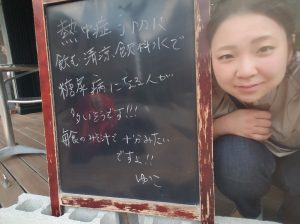 熱中症予防に
飲む清涼飲料水で
糖尿病になる人が
多いそうです!!!
毎食のみそ汁で十分みたい
ですよ!!
ゆいこ